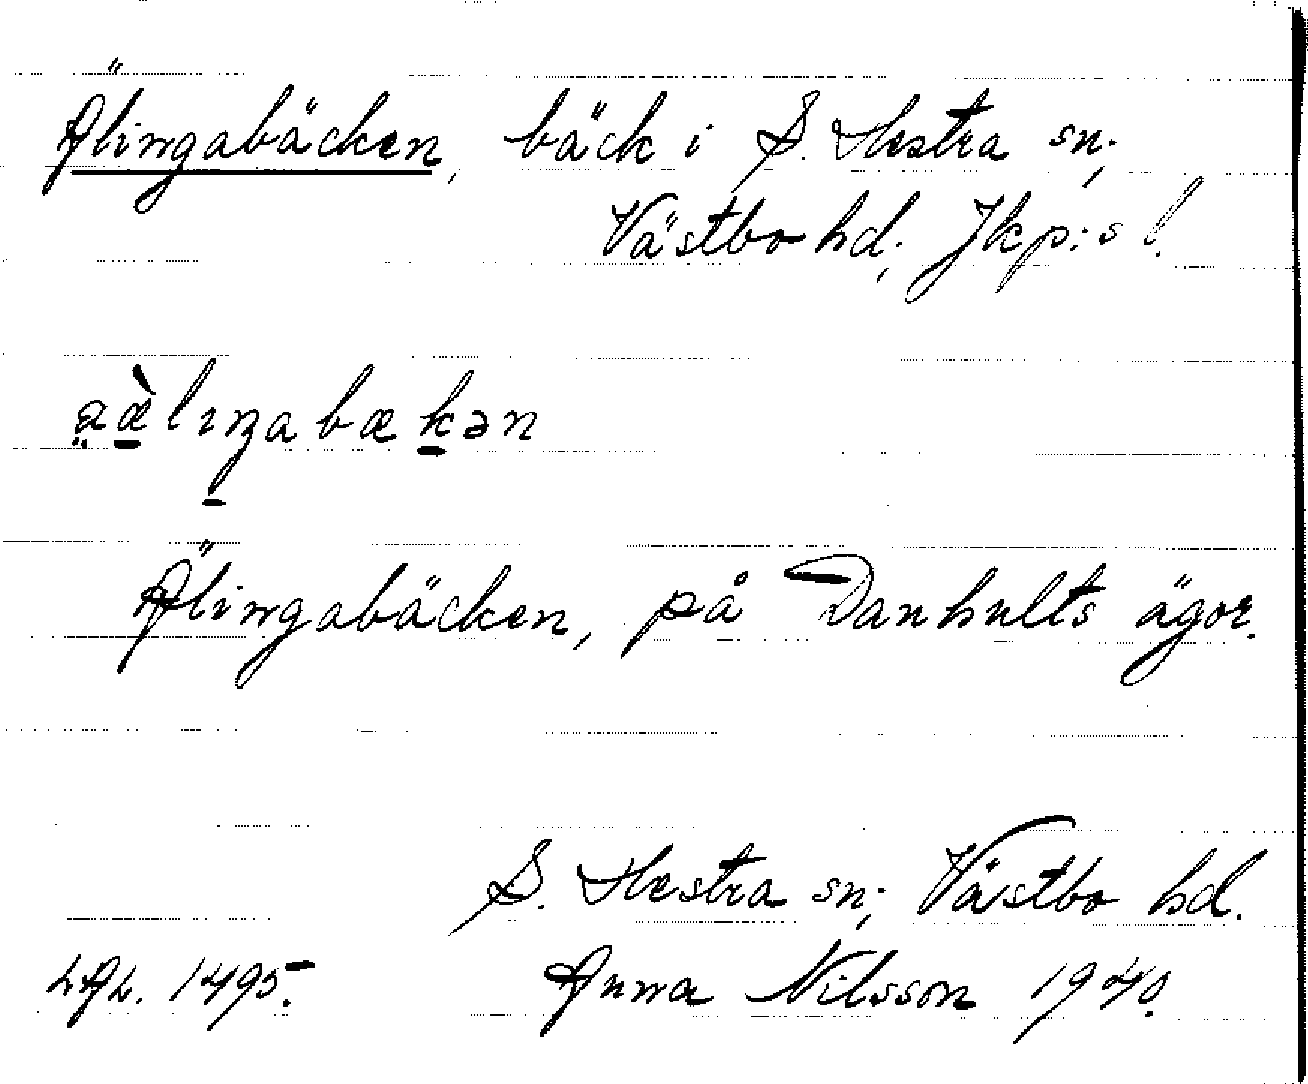 Älingabäcken, bäck i S. Hestra sn;
Västbo hd; Jkp:s l.
Älingabäcken, på Danhults ägor.
S. Hestra sn; Västbo hd.
LAL. 1495. Anna Nilsson 1940.